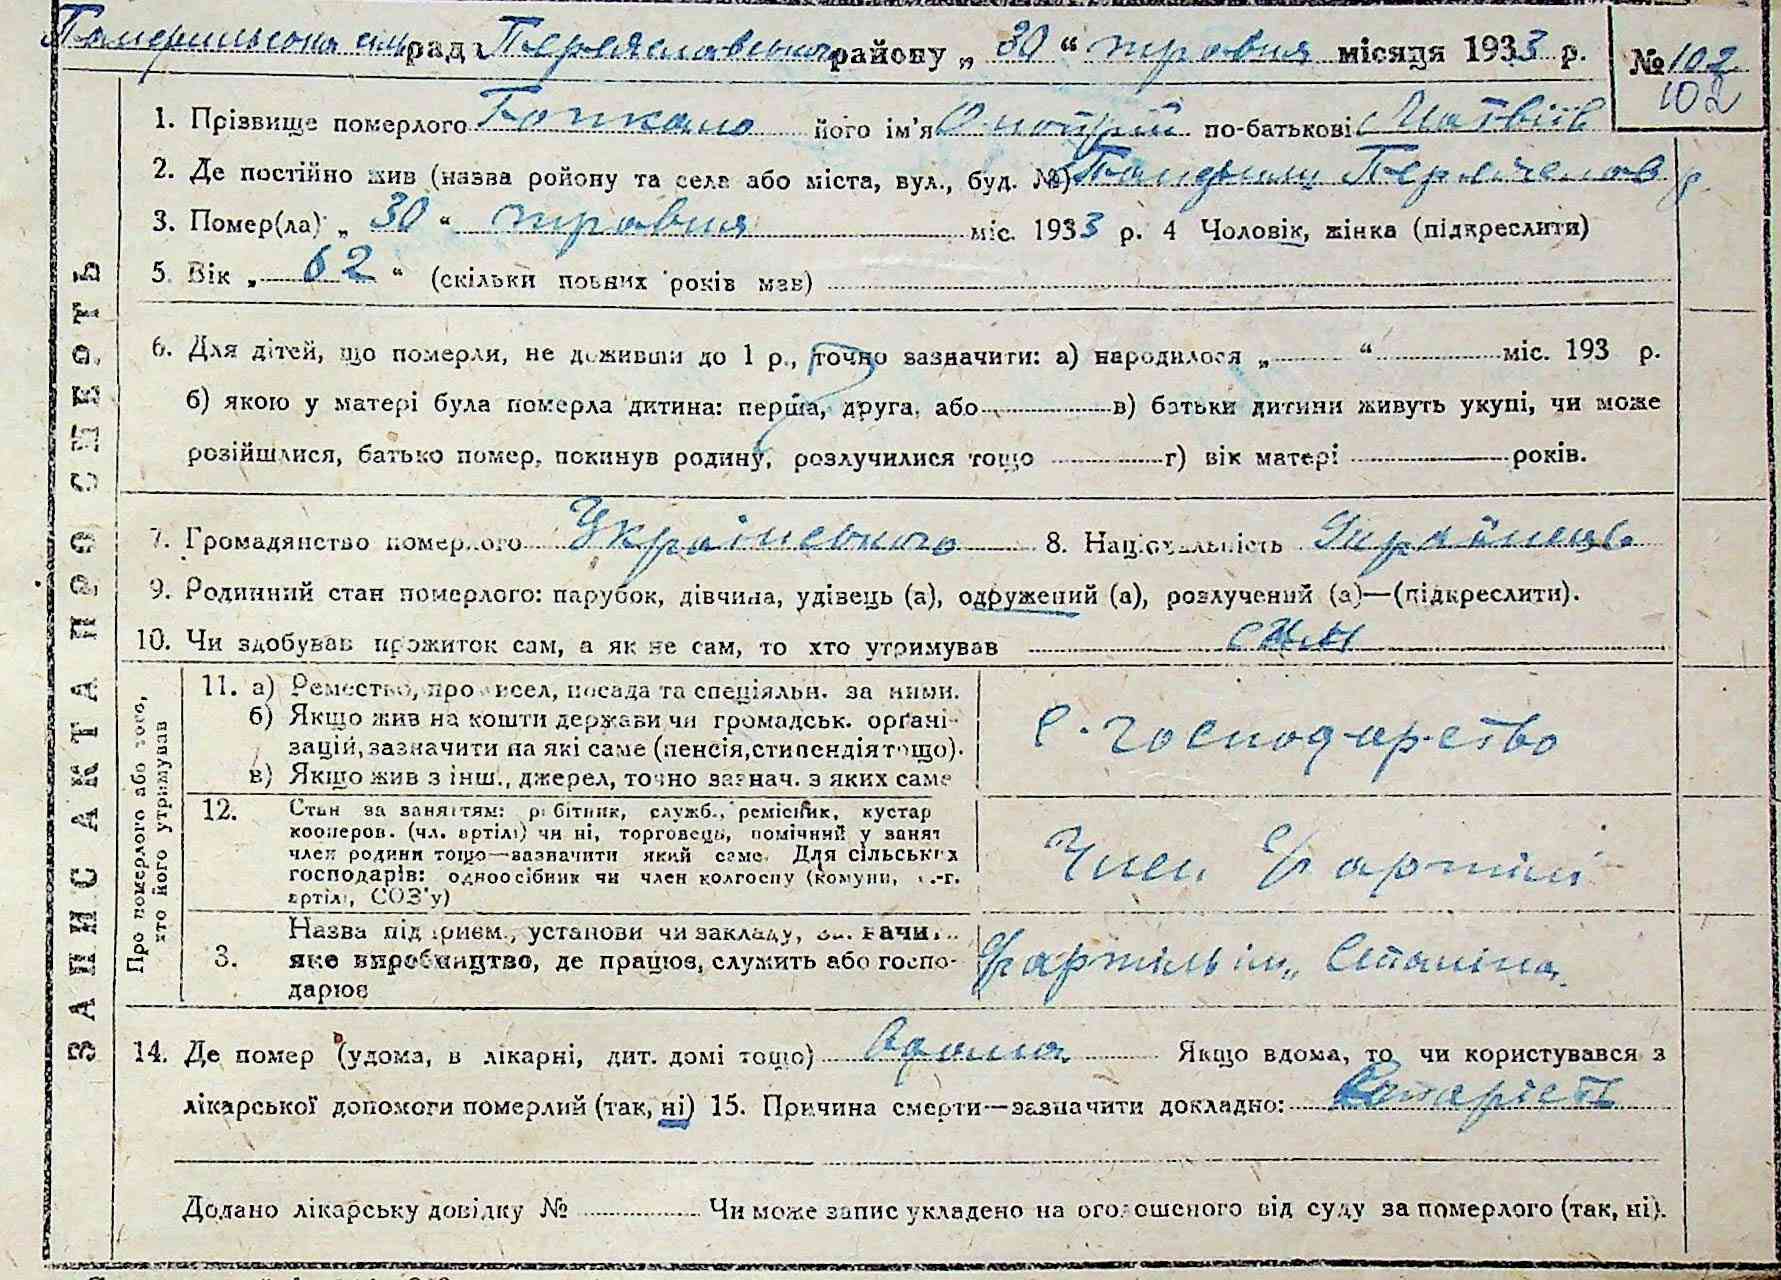 рада Переяславського району „ 30 “ травня місяця 1933 р. № 102
102
1. Прізвище померлого його ім'я Онопрій по-батькові Матвіїв
2. Де постійно жив (назва ройону та села або міста, вул., буд. №)
3. Помер(ла) „ 30 “ травня міс. 1933 р. 4 Чоловік, жінка (підкреслити)
5. Вік „ 62 “ (скільки повних років мав)
6. Для дітей, що померли, не доживши до 1 р., точно зазначити: а) народилося „ “ міс. 193 р.
б) якою у матері була померла дитина: перша, друга, або в) батьки дитини живуть укупі, чи може
розійшлися, батько помер, покинув родину, розлучилися тощо г) вік матері років.
7. Громадянство померлого Українського 8. Національність Українець
9. Родинний стан померлого: парубок, дівчина, удівець (а), одружений (а), розлучений (а)—(підкреслити).
10. Чи здобував прожиток сам, а як не сам, то хто утримував син
ЗАПИС АКТА ПРО СМЕРТЬ
Про померлого або того,
хто його утримував
11. а) Ремество, промисел, посада та спеціяльн. за ними.
б) Якщо жив на кошти держави чи громадськ. органі-
зацій, зазначити на які саме (пенсія, стипендія тощо).
в) Якщо жив з інш., джерел, точно зазнач. з яких саме
С. господарство
12. Стан за заняттям: робітник, служб., ремісник, кустар
кооперов. (чл. артілі) чи ні, торговець, помічний у занят
член родини тощо—зазначити який саме. Для сільських
господарів: одноосібник чи член колгоспу (комуни, с.-г.
артілі, СОЗ'у)
Член с/г артілі
3. Назва підприєм., установи чи закладу, зазначити
яке виробництво, де працює, служить або госпо-
дарює
с/г артіль ім. Сталіна
14. Де помер (удома, в лікарні, дит. домі тощо) вдома Якщо вдома, то чи користувався з
лікарської допомоги померлий (так, ні) 15. Причина смерти—зазначити докладно: старість
Додано лікарську довідку № Чи може запис укладено на оголошеного від суду за померлого (так, ні).